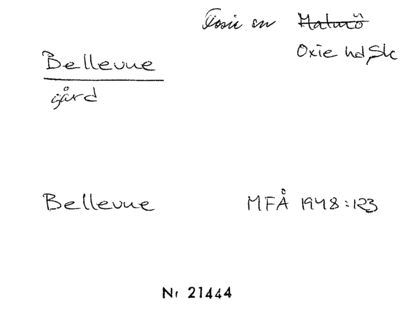 Fosie sn Malmö
Oxie hd, Sk
Bellevue
gård
Bellevue MFÅ 1948:123
Nr 21444